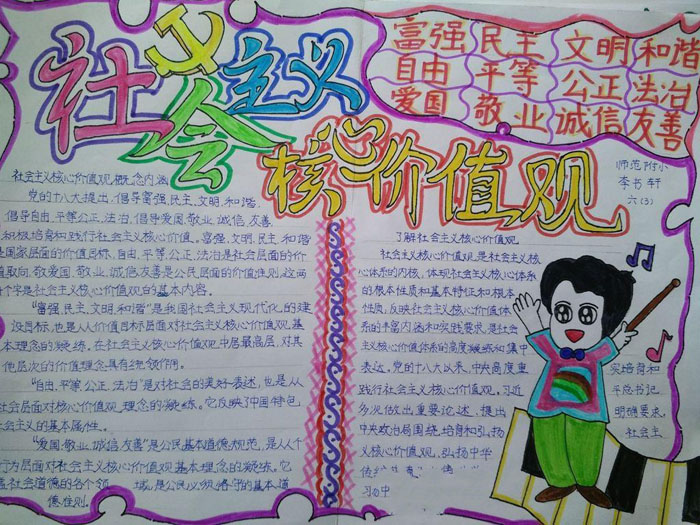 社会主义
核心价值观
富强 民主 文明 和谐
自由 平等 公正 法治
爱国 敬业 诚信 友善
师范附小
李书轩
六(3)
社会主义核心价值观概念内涵
党的十八大提出,倡导富强,民主,文明,和谐,
倡导自由,平等公正,法治,倡导爱国,敬业,诚信,友善
积极培育和践行社会主义核心价值。富强,文明,民主,和谐
是国家层面的价值目标,自由,平等,公正,法治是社会层面的价
值取向,敬爱国,敬业,诚信友善是公民层面的价值准则,这两
个字是社会核心价值观的基本内容。
“富强,民主,文明,和谐”是我国社会主义现代化的建
设目标,也是从价值目标层面对社会主义核心价值观,基
本理念的凝练,在社会核心价值观中居最高层,对其
他层次的价值理念具有统领作用。
“自由,平等,公正,法治”是对社会的美好表述,也是从
社会层面对核心价值观,理念的凝练。它反映了中国特色
社会主义的基本属性。
“爱国,敬业,诚信,友善”是公民基本道德规范,是从个
行为层面对社会主义核心价值观基本理念的凝练。它
盖社会道德的各个领 域,是公民必须恪守的基本道
德准则.
了解社会主义核心价值观
社会主义核心价值观是社会主义核
心体系的内核,体现社会主义核心体系
的根本性质和基本特征和根本
性质,反映社会主义核心价值体
系的丰富内涵和实践要求,是社会
主义核心价值体系的高度凝练和集中
表达。党的十八大以来,中央高度重
践行社会主义核心价值观。习近
多次做出重要论述,提出
中央政治局围绕培育和弘扬
义核心价值观,弘扬中华
传
习
实培育和
平总书记
明确要求,
社会主